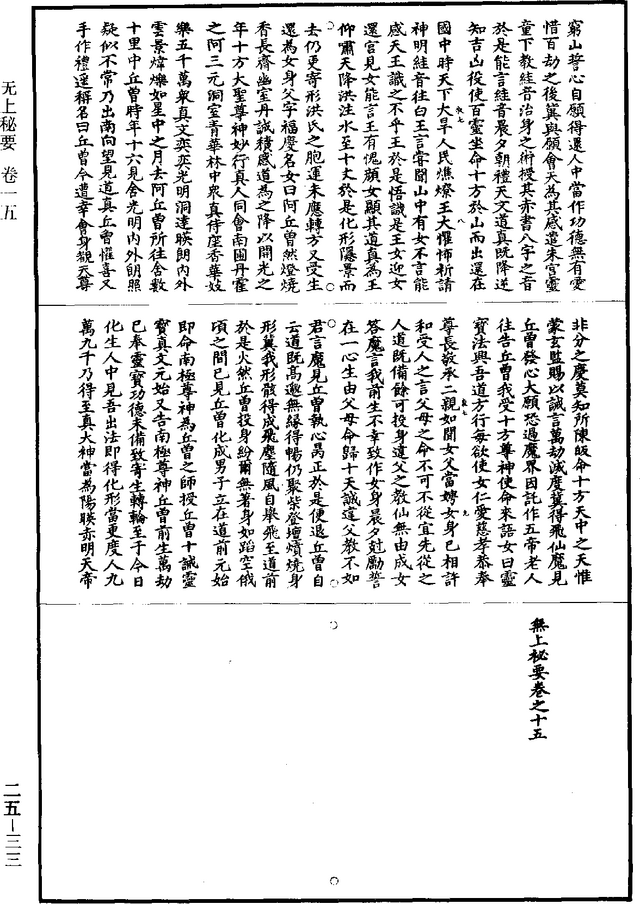 无上秘要 卷一五
二五—三三
窮山誓心自願得還人中當作功德無有愛
惜百劫之後冀與願會天為其感遣朱宮靈
童下教絓音治身之術授其赤書八字之音
於是能言絓音晨夕朝禮天文道真既降逆
知吉凶役使百靈坐命十方於山而出還在
國中時天下大旱人民燋燎王大懼怖祈請
神明絓音往白王言嘗聞山中有女不言能
感天王識之不乎王於是悟識是王女迎女
還宮見女能言王有愧顏女顯其道真為王
仰嘯天降洪注水至十丈於是化形隱景而
去仍更寄形洪氏之胞運未應轉方又受生
還為女身父字福慶名女曰阿丘曾然燈燒
香長齋幽室丹誠積感道為之降以開光之
年十方大聖尊神妙行真人同會南圃丹霍
之阿三元洞室青華林中眾真侍座香華妓
樂五千萬眾真文奕奕光明洞達暎朗內外
雲景煒爍如星中之月去阿丘曾所住舍數
十里中丘曾時年十六見舍光明內外朗照
疑似不常乃出南向望見道真丘曾懽喜又
手作禮遥稱名曰丘曾今遭幸會身覩天尊
非分之慶莫知所陳皈命十方天中之天惟
蒙玄監賜以誠言萬劫滅度冀得飛仙魔見
丘曾發心大願恐過魔界因託作五帝老人
往告丘曾我受十方尊神使命來語女曰靈
寶法興吾道方行每欲使女仁愛慈孝恭奉
尊長敬承二親如聞女父當娉女身已相許
和受人之言父母之命不可不從宜先從之
人道既備餘可投身違父之教仙無由成女
荅魔言我前生不幸致作女身晨夕尅勵誓
在一心生由父母命歸十天誠違父教不如
君言魔見丘曾執心㫒正於是便退丘曾自
云道既高邈無緣得暢仍聚柴登壇燌燒身
形冀我形骸得成飛塵隨風自舉飛至道前
於是火然丘曾投身紛爾無著身如蹈空俄
頃之間已見丘曾化成男子立在道前元始
即命南極尊神為丘曾之師授丘曾十誡靈
寶真文元始又告南極尊神丘曾前生萬劫
已奉靈寶功德未備致寄生轉輪至于今日
化生人中見吾出法即得化形當更度人九
萬九千乃得至真大神當為陽暎赤明天帝
無上秘要卷之十五